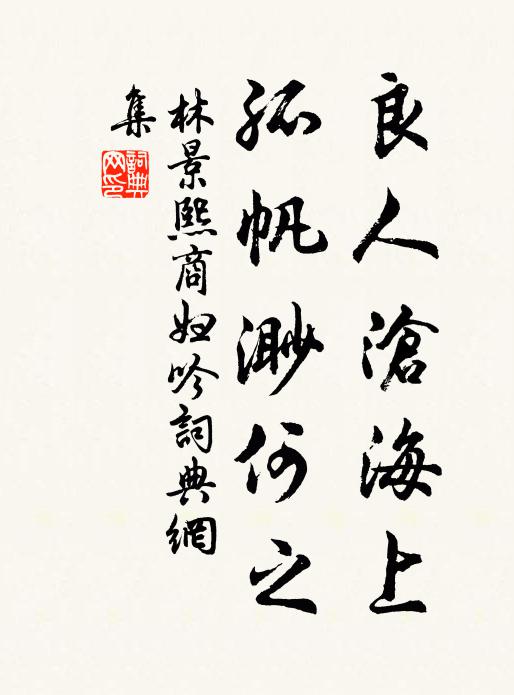 良人滄海上
孤帆渺何之
林景熙商妇吟詞典網
集
詞典
网印